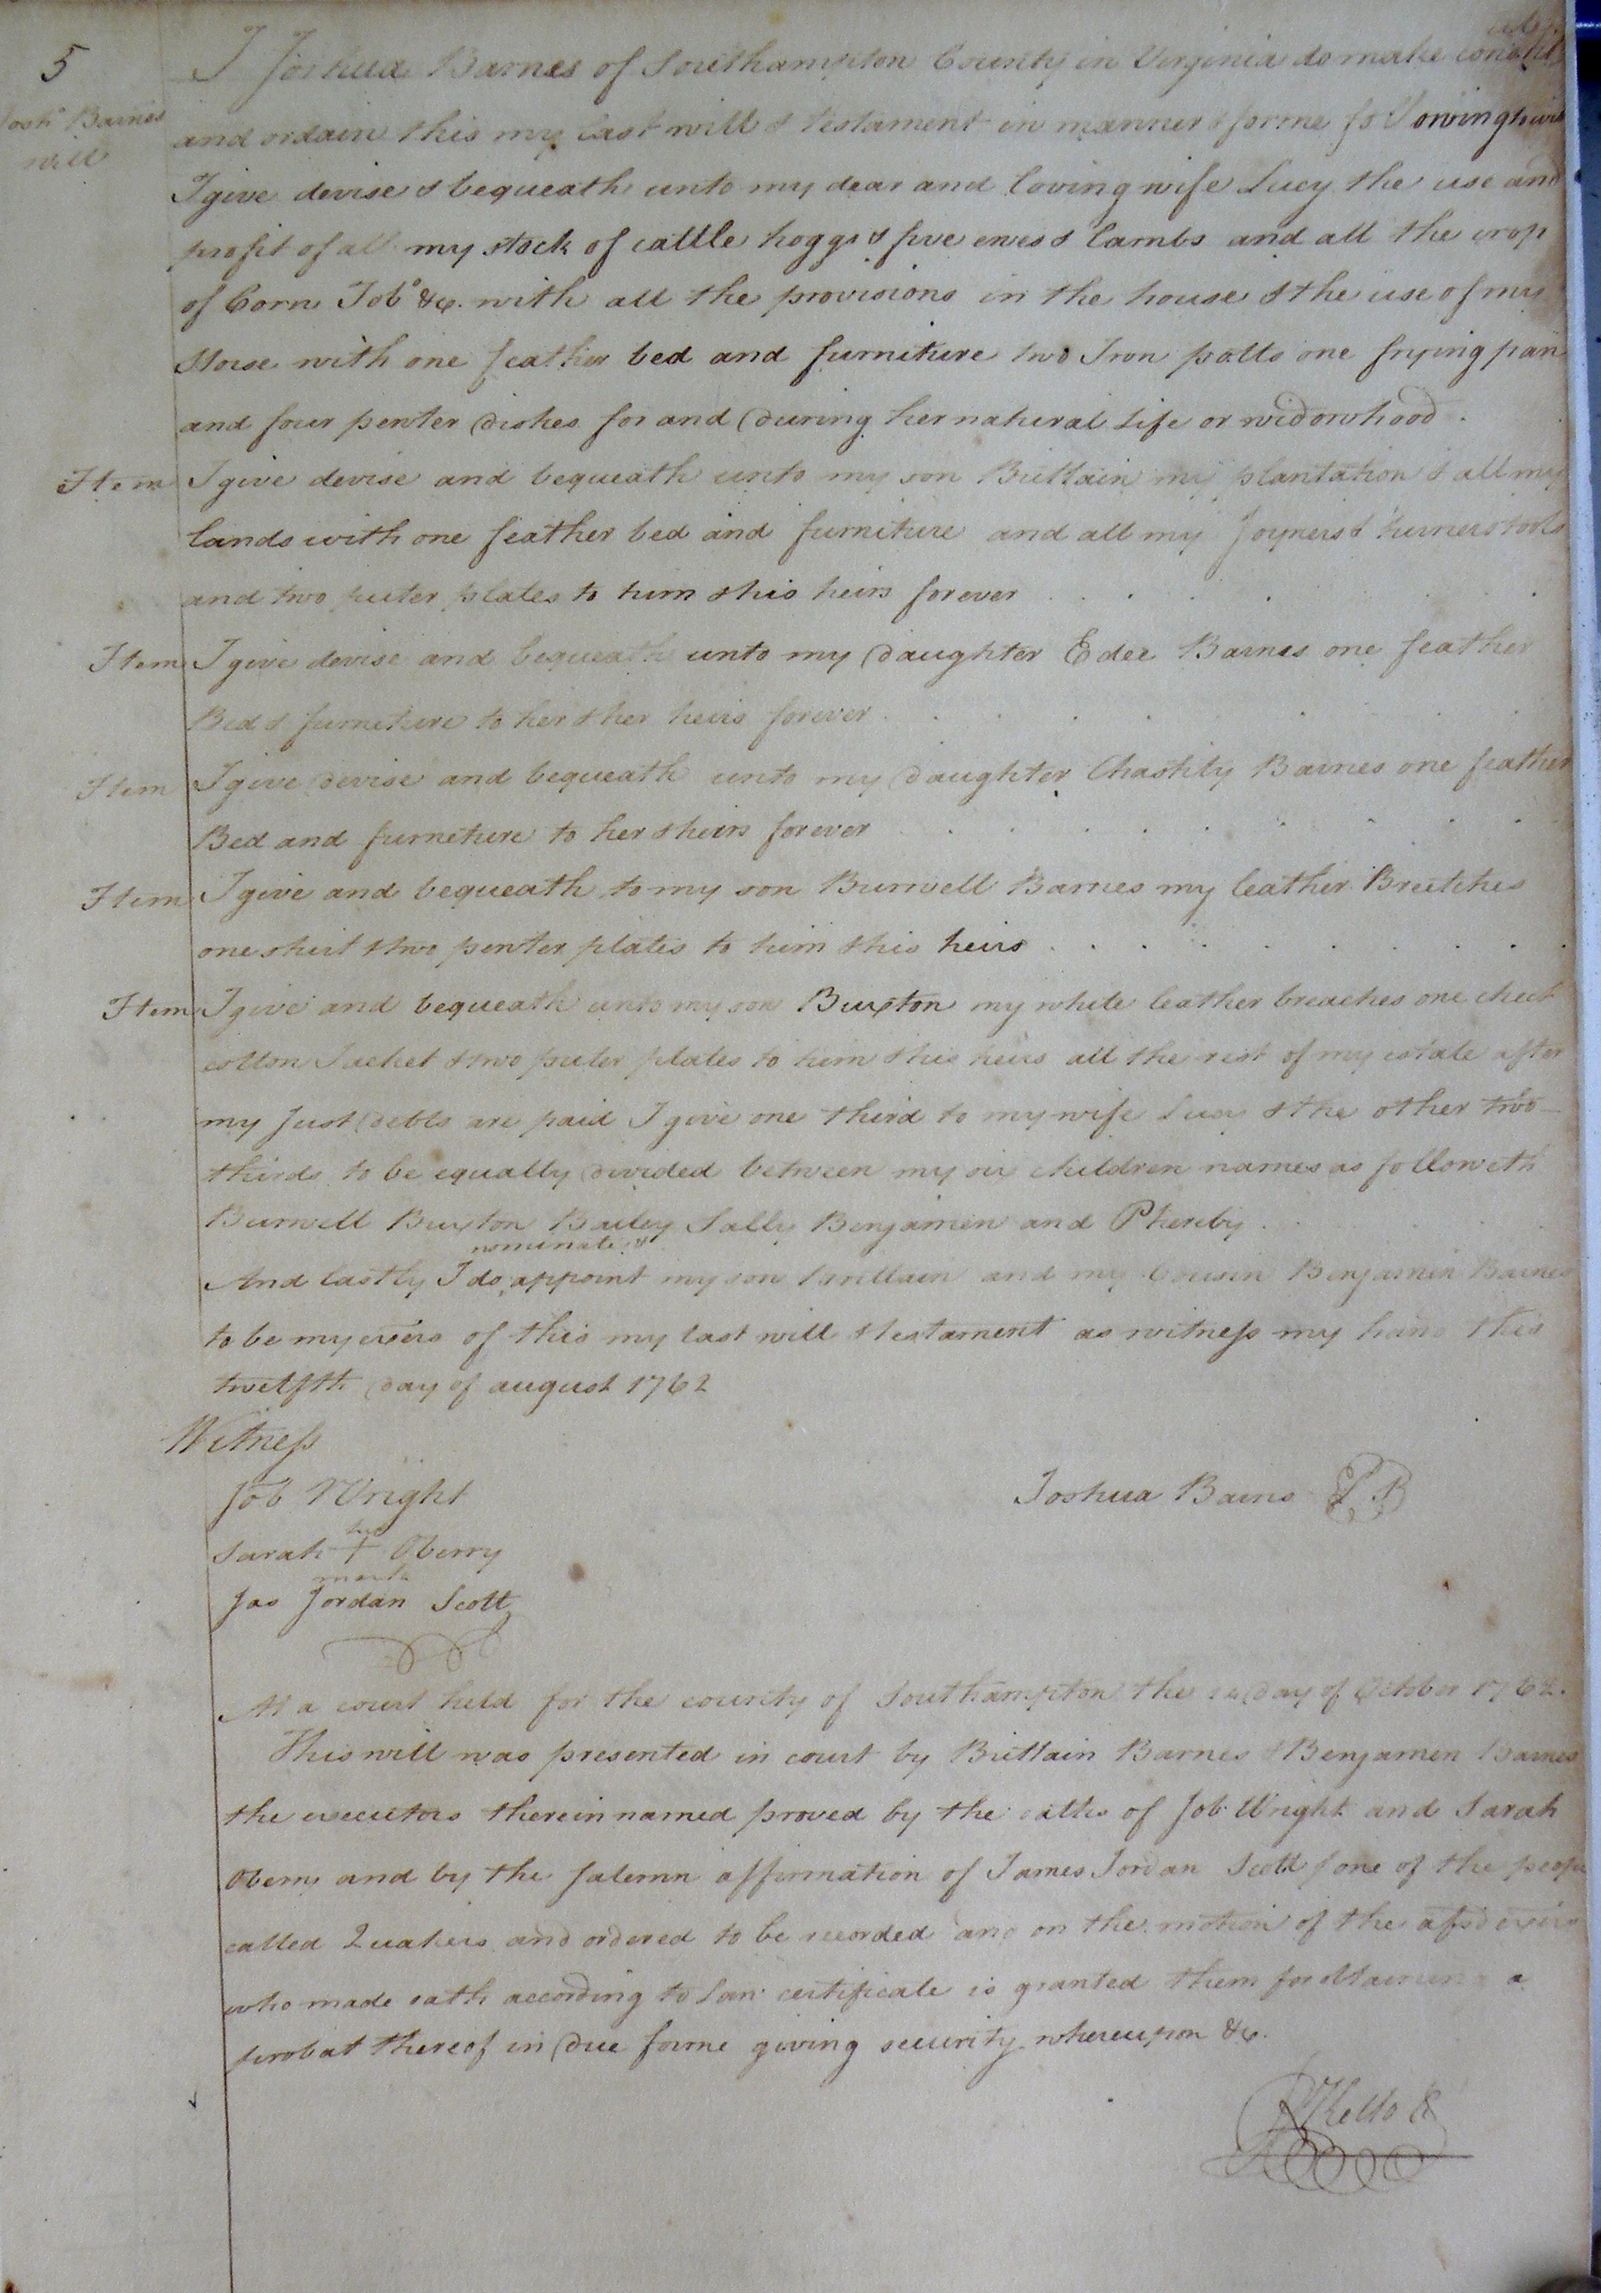 5
Josh Barnes
will
I Joshua Barnes of Southampton County in Virginia do make
and ordain this my last will & testament in manner & forme following towit
I give devise & bequeath unto my dear and loving wife Lucy the use and
profit of all my stock of cattle hoggs & five ewes & lambs and all the crop
of Corn Tobo &c. with all the provisions in the house & the use of my
Horse with one feather bed and furniture two Iron potts one frying pan
and four pewter dishes for and during her natural life or widowhood.
Item I give devise and bequeath unto my son Brittain my plantation & all my
lands with one feather bed and furniture and all my Joyners & turners tools
and two puter plates to him & his heirs forever
Item I give devise and bequeath unto my daughter Edee Barnes one feather
Bed & furneture to her & her heirs forever
Item I give devise and bequeath unto my daughter Chastity Barnes one feather
Bed and furneture to her & heirs forever
Item I give and bequeath to my son Burwell Barnes my leather Breetches
one shirt & two pewter plates to him & his heirs
Item I give and bequeath unto my son Buxton my white leather breaches one check
cotton Jacket & two puter plates to him & his heirs all the rest of my estate after
my Just debts are paid I give one third to my wife Lucy & the other two
thirds to be equally divided between my six children names as followeth
Burwell Buxton Bailey Sally Benjamin and Phereby.
nominate &
And lastly I do appoint my son Brittain and my Cousin Benjamin Barnes
to be my exers of this my last will & testament as witness my hand this
twelfth day of august 1762
Witness
Job Wright
Joshua Barns
her
Sarah + Oberry
mark
Jas Jordan Scott
At a court held for the county of Southampton the day of October 1762.
This will was presented in court by Brittain Barnes & Benjamen Barnes
the executors therein named proved by the oaths of Job Wright and Sarah
Oberry and by the Solemn affirmation of James Jordan Scott / one of the people
called Quakers and ordered to be recorded and on the motion of the afsd
who made oath according to Law certificate is granted them for obtaining a
probat thereof in due forme giving security whereupon &c.
R Kello